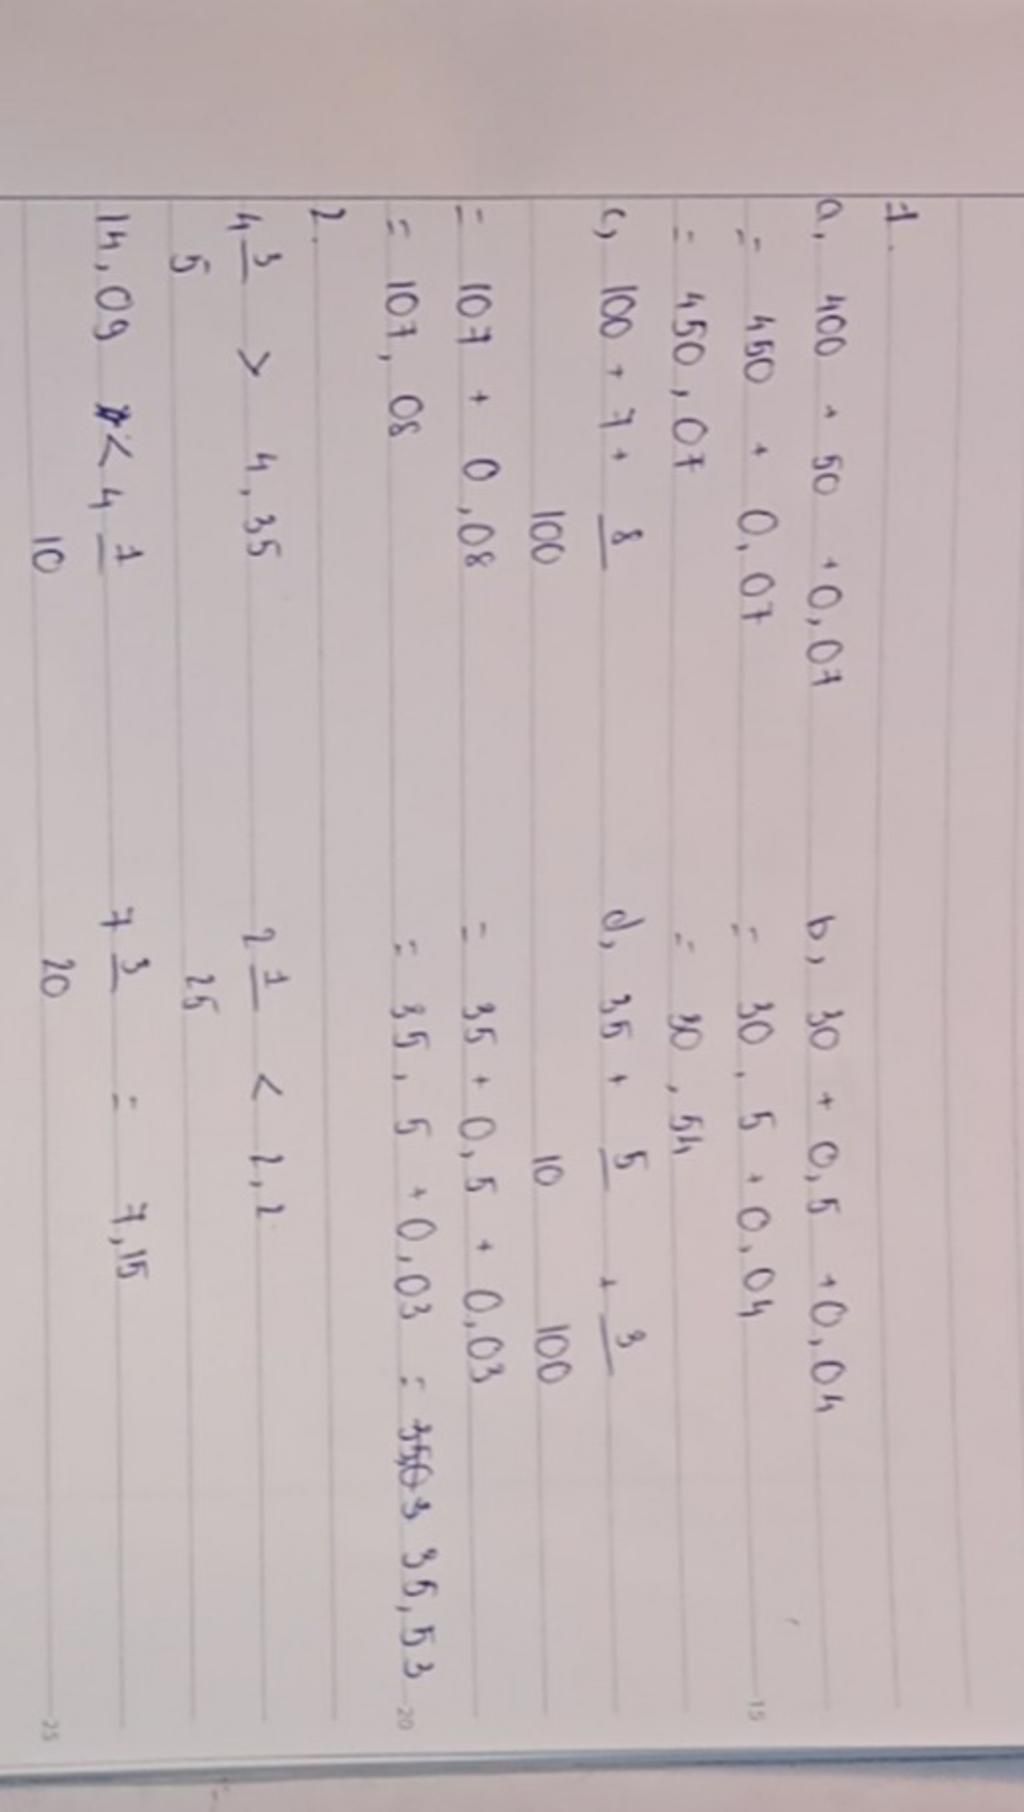 1.
a, 400 + 50 + 0,07 b, 30 + 0,5 + 0,04
= 450 + 0,07 = 30,5 + 0,04
= 450,07 = 30,54
c, 100 + 7 + 8/100 d, 35 + 5/10 + 3/100
= 107 + 0,08 = 35 + 0,5 + 0,03
= 107,08 = 35,5 + 0,03 = 35,03 35,53
2.
4 3/5 > 4,35 2 1/25 < 2,2
14,09 < 4 1/10 7 3/20 = 7,15
15
20
25